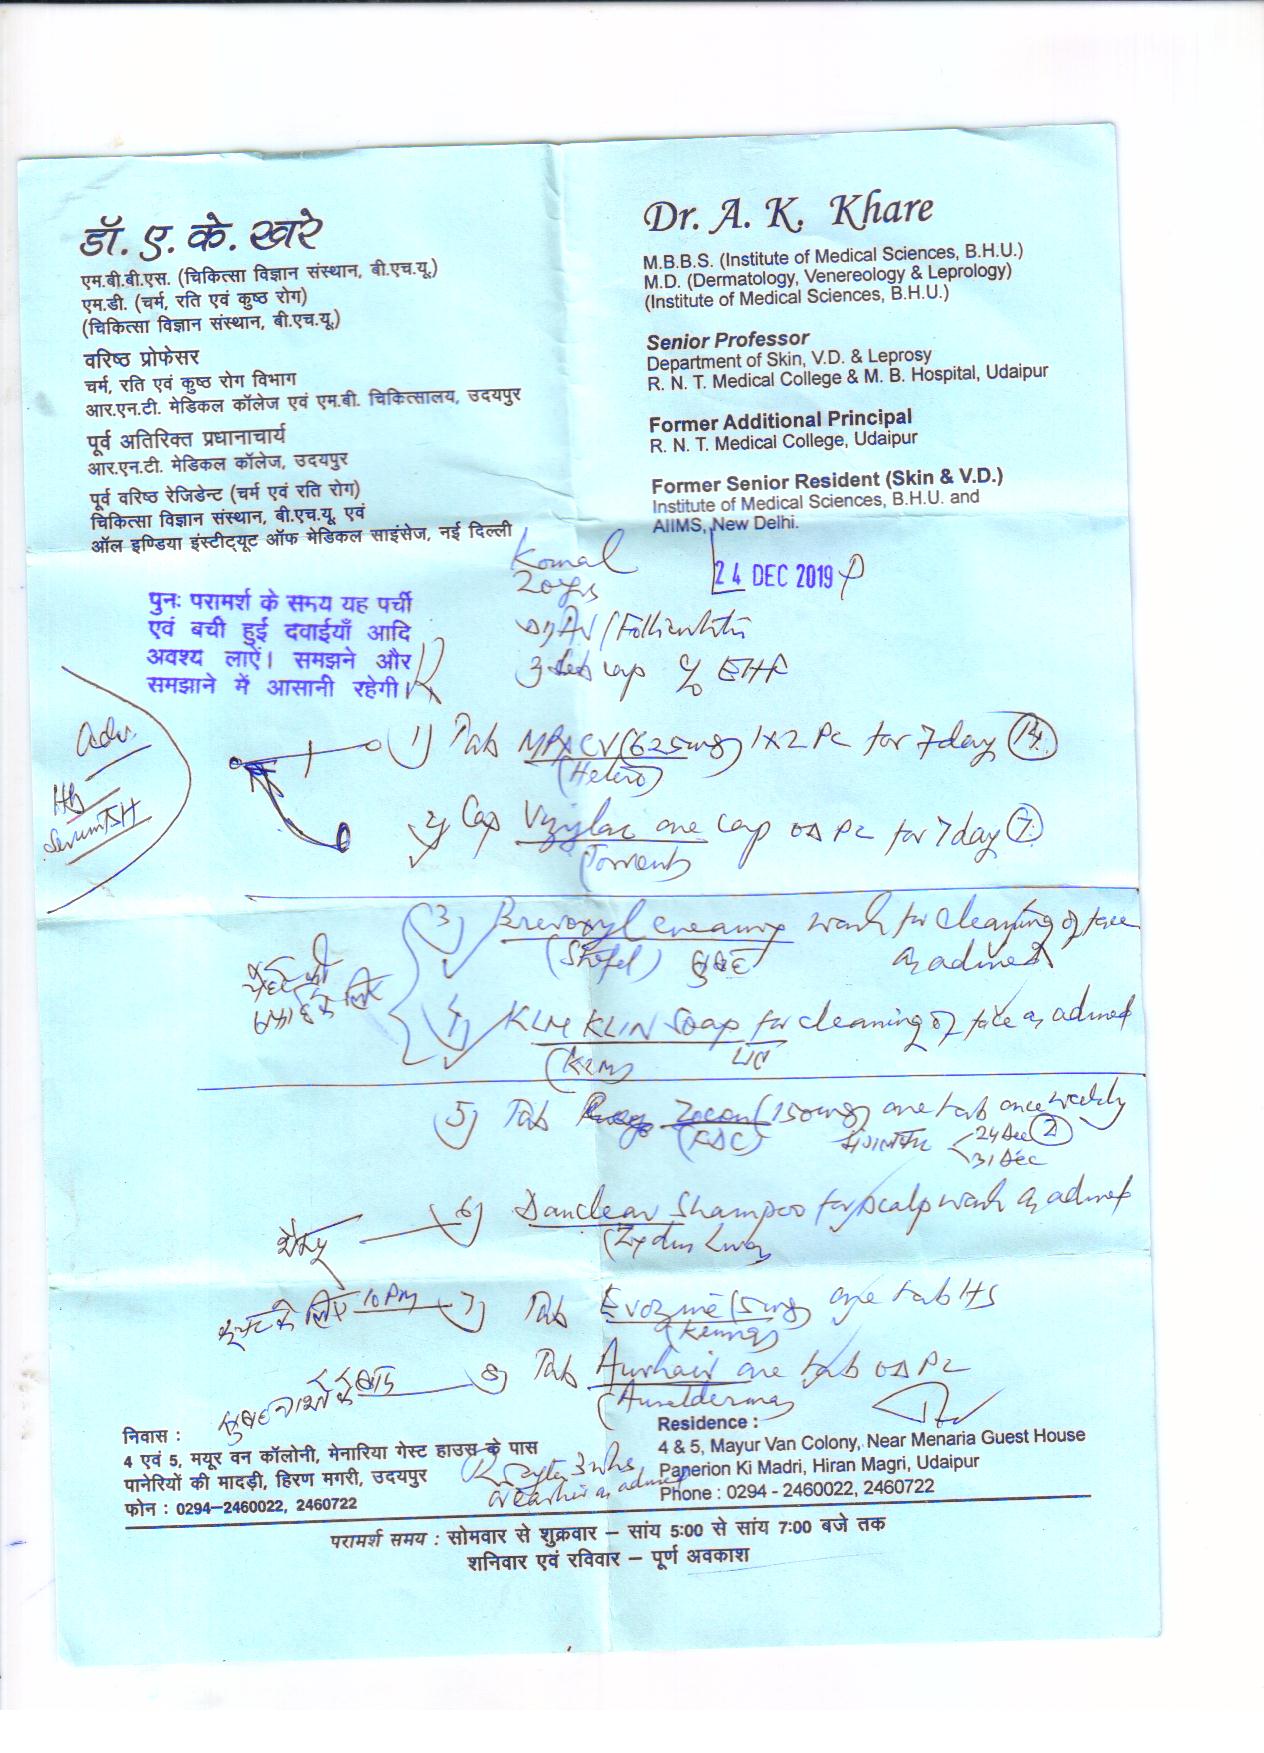 डॉ. ए. के. खरे
एम.बी.बी.एस. (चिकित्सा विज्ञान संस्थान, बी.एच.यू.)
एम.डी. (चर्म, रति एवं कुष्ठ रोग)
(चिकित्सा विज्ञान संस्थान, बी.एच.यू.)
वरिष्ठ प्रोफेसर
चर्म, रति एवं कुष्ठ रोग विभाग
आर.एन.टी. मेडिकल कॉलेज एवं एम.बी. चिकित्सालय, उदयपुर
पूर्व अतिरिक्त प्रधानाचार्य
आर.एन.टी. मेडिकल कॉलेज, उदयपुर
पूर्व वरिष्ठ रेजिडेन्ट (चर्म एवं रति रोग)
चिकित्सा विज्ञान संस्थान, बी.एच.यू. एवं
ऑल इण्डिया इंस्टीट्यूट ऑफ मेडिकल साइंसेज, नई दिल्ली
Dr. A. K. Khare
M.B.B.S. (Institute of Medical Sciences, B.H.U.)
M.D. (Dermatology, Venereology & Leprology)
(Institute of Medical Sciences, B.H.U.)
Senior Professor
Department of Skin, V.D. & Leprosy
R. N. T. Medical College & M. B. Hospital, Udaipur
Former Additional Principal
R. N. T. Medical College, Udaipur
Former Senior Resident (Skin & V.D.)
Institute of Medical Sciences, B.H.U. and
AIIMS, New Delhi.
Komal
20yrs
24 DEC 2019
पुनः परामर्श के समय यह पर्ची
एवं बची हुई दवाईयाँ आदि
अवश्य लाऐं। समझने और
समझाने में आसानी रहेगी।
Adv.
Hb
Serum TSH
1) Tab MPACV (625mg) 1x2 PC for 7 day 14
(Hetero)
2) Cap Vizylac one cap OD PC for 7 day 7
(Torrent)
3) Brevoxyl creamy wash for cleaning of face
(Stiefel) सुबह as advised
4) KLM KLIN Soap for cleaning of face as advised
(KLM)
5) Tab Zocon (150mg) one tab once weekly
(FDC) मंगलवार 24 Dec 2
31 Dec
6) Danclear Shampoo for scalp wash as advised
शैम्पू
10 PM 7) Tab Evozine (5mg) one tab HS
8) Tab Aurhair one tab OD PC
निवास :
4 एवं 5, मयूर वन कॉलोनी, मेनारिया गेस्ट हाउस के पास
पानेरियों की मादड़ी, हिरण मगरी, उदयपुर
फोन : 0294-2460022, 2460722
Residence :
4 & 5, Mayur Van Colony, Near Menaria Guest House
Panerion Ki Madri, Hiran Magri, Udaipur
Phone : 0294 - 2460022, 2460722
परामर्श समय : सोमवार से शुक्रवार – सांय 5:00 से सांय 7:00 बजे तक
शनिवार एवं रविवार – पूर्ण अवकाश